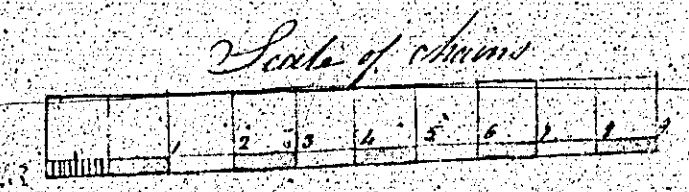 Scale of chains
1 2 3 4 5 6 7 8 9